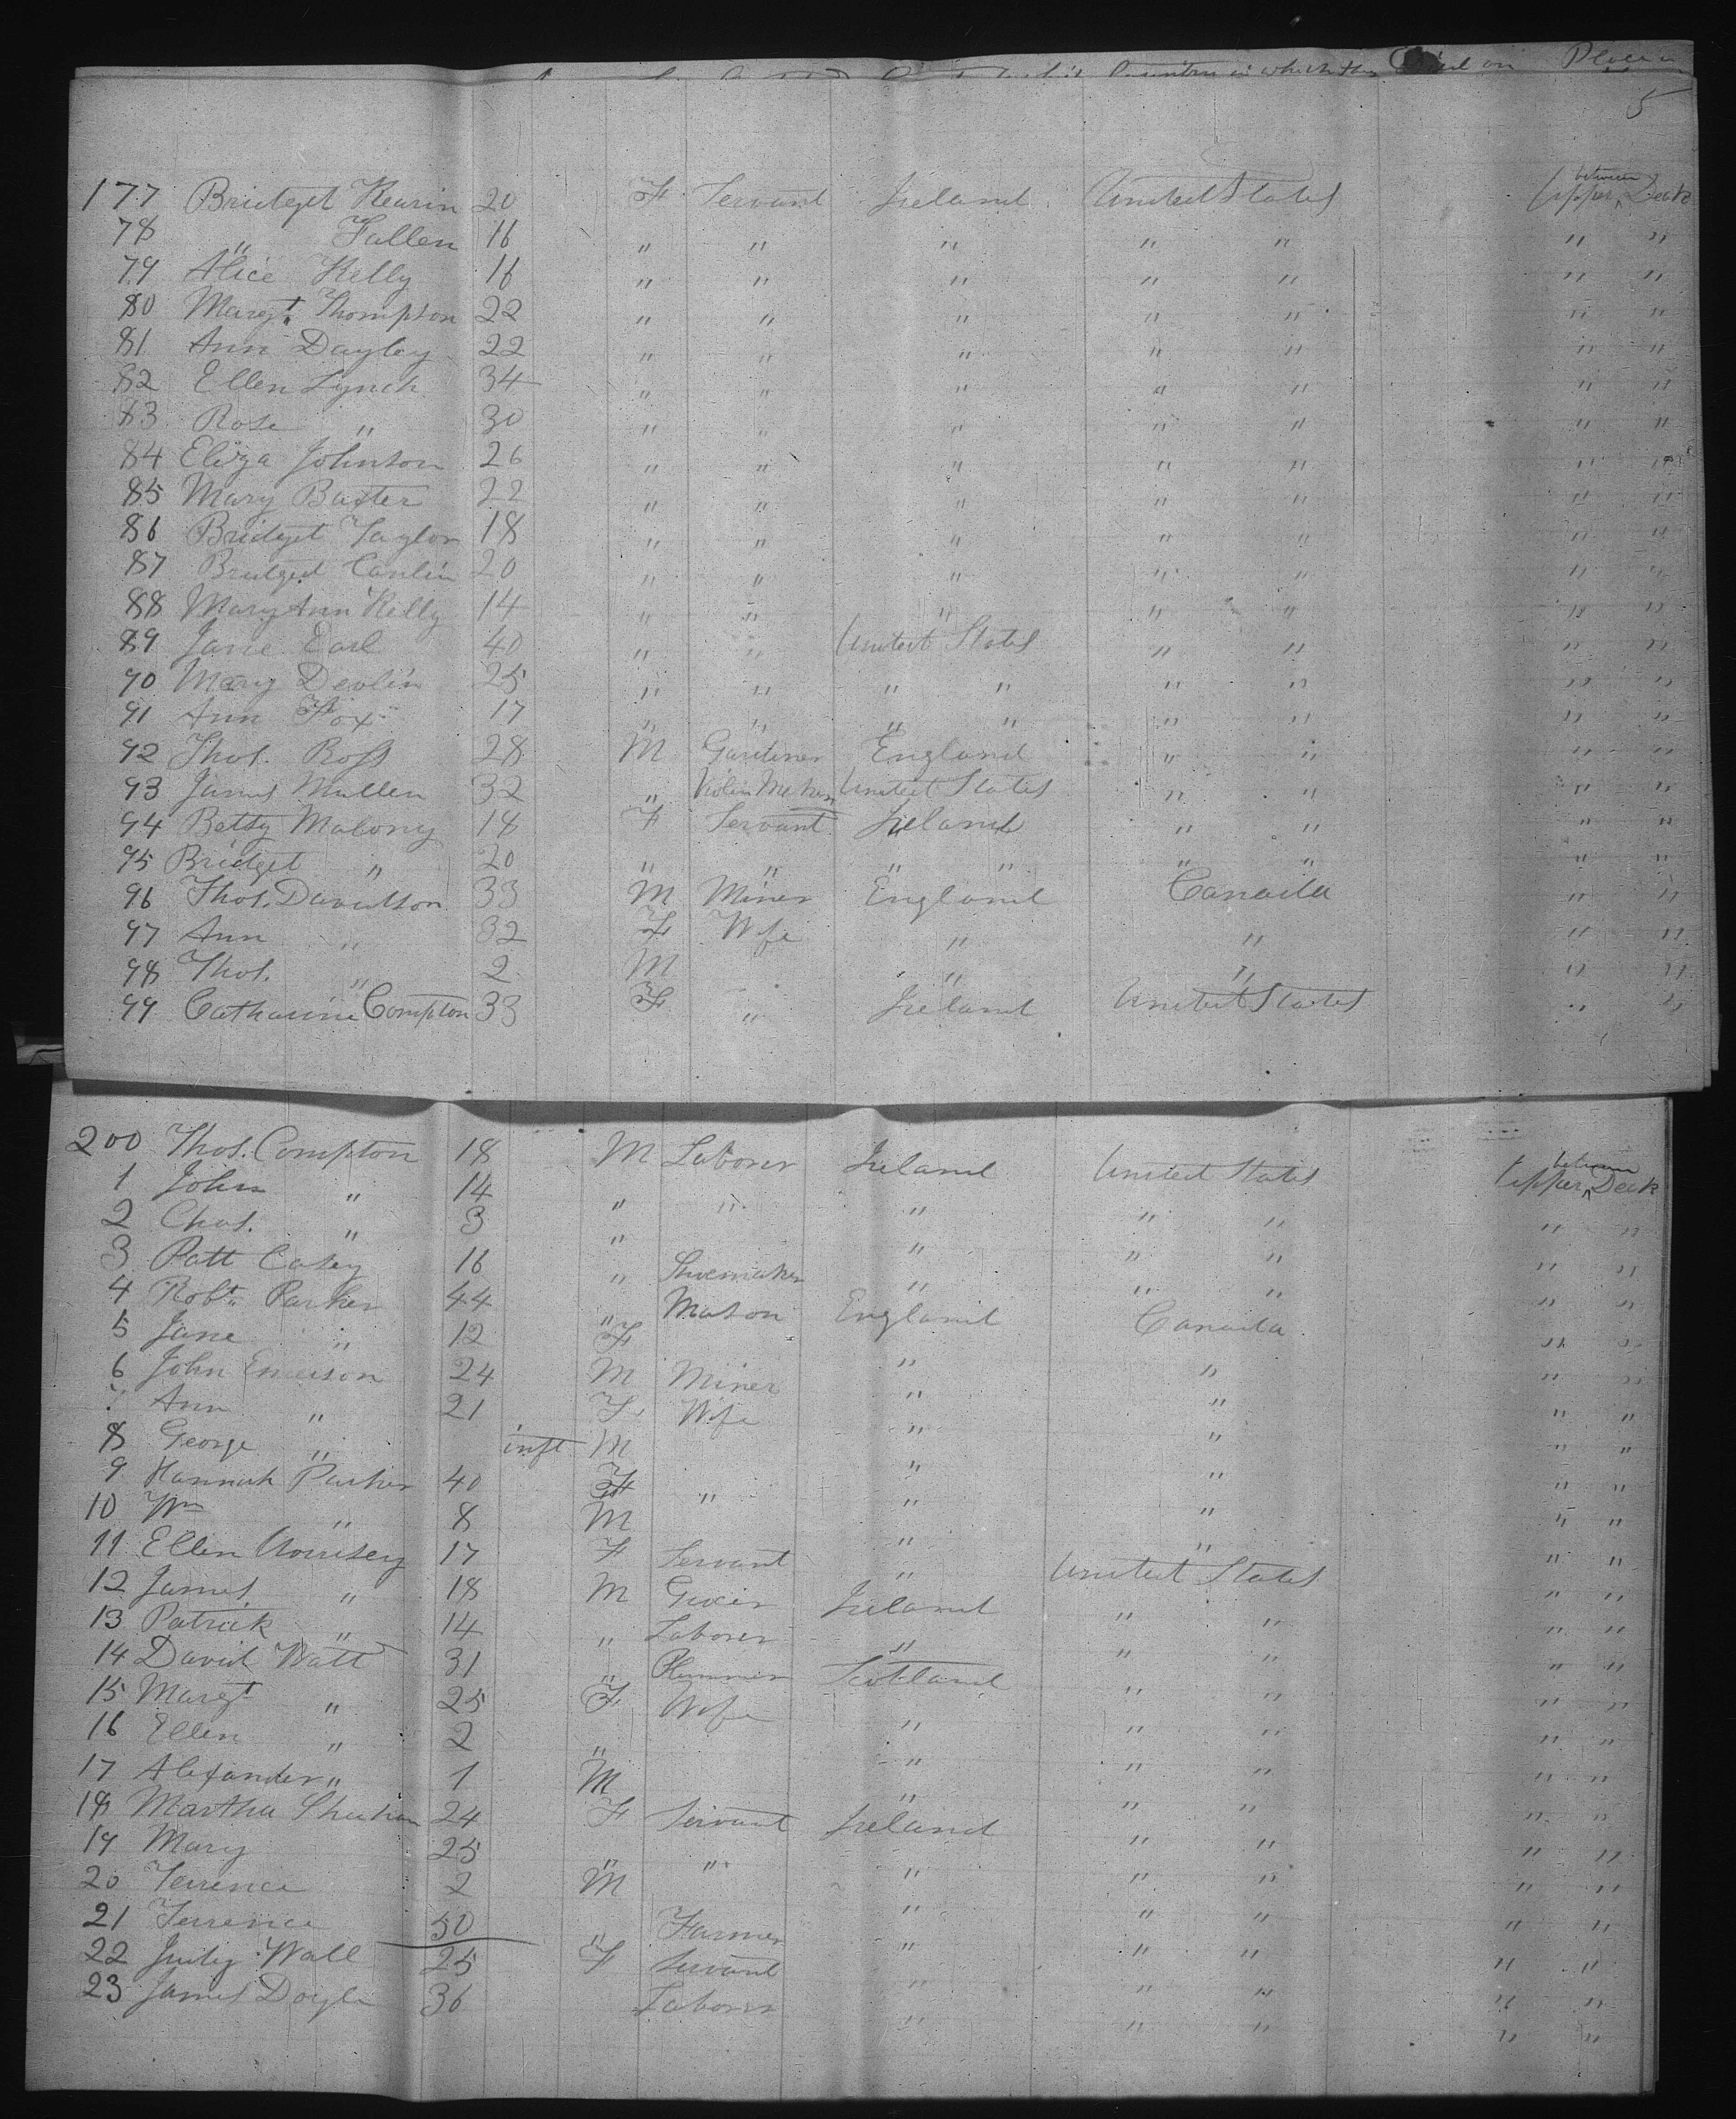 Countries in which they on Place in
5
177 Bridget Kearin 20 F Servant Ireland United States Upper between Deck
78 " Fallen 16 " " " " " " "
79 Alice Kelly 16 " " " " " " "
80 Margt. Thompson 22 " " " " " " "
81 Ann Dayley 22 " " " " " " "
82 Ellen Lynch 34 " " " " " " "
83 Rose " 30 " " " " " " "
84 Eliza Johnson 26 " " " " " " "
85 Mary Baxter 22 " " " " " " "
86 Bridget Taylor 18 " " " " " " "
87 Bridget Conlin 20 " " " " " " "
88 Mary Ann Kelly 14 " " " " " " "
89 Jane Earl 40 " " United States " " " "
90 Mary Devlin 25 " " " " " " " "
91 Ann Fox 17 " " " " " " " "
92 Thos. Ross 28 M Gardiner England " " " "
93 James Mullen 32 " Violin Maker United States " " " "
94 Betsy Malony 18 F Servant Ireland " " " "
95 Bridget " 20 " " " " " " " "
96 Thos. Davidson 33 M Miner England Canada " "
97 Ann " 32 F Wife " " " "
98 Thos. " 2 M " " " "
99 Catharine Compton 33 F " Ireland United States " "
200 Thos. Compton 18 M Laborer Ireland United States Upper between Deck
1 John " 14 " " " " " " "
2 Chas. " 3 " " " " " "
3 Patt Casey 16 " Shoemaker " " " " "
4 Robt. Parker 44 " Mason England Canada " "
5 Jane " 12 F " " " "
6 John Emerson 24 M Miner " " " "
7 Ann " 21 F Wife " " " "
8 George " inft M " " " "
9 Hannah Parker 40 F " " " " "
10 Wm " 8 M " " " "
11 Ellen 17 F Servant " United States " "
12 James " 18 M Ireland " " " "
13 Patrick " 14 " Laborer " " " " "
14 David Watt 31 " Plummer Scotland " " " "
15 Margt " 25 F Wife " " " " "
16 Ellen " 2 " " " " " "
17 Alexander " 1 M " " " " "
18 Martha Sheehan 24 F Servant Ireland " " " "
19 Mary 25 " " " " " " "
20 Terrence 2 M " " " " "
21 Terrence 50 " Farmer " " " " "
22 Judy Wall 25 F Servant " " " " "
23 James Doyle 36 Laborer " " " " "